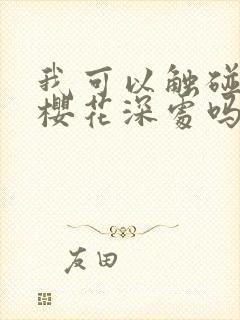 我可以触碰
樱花深处吗
友田